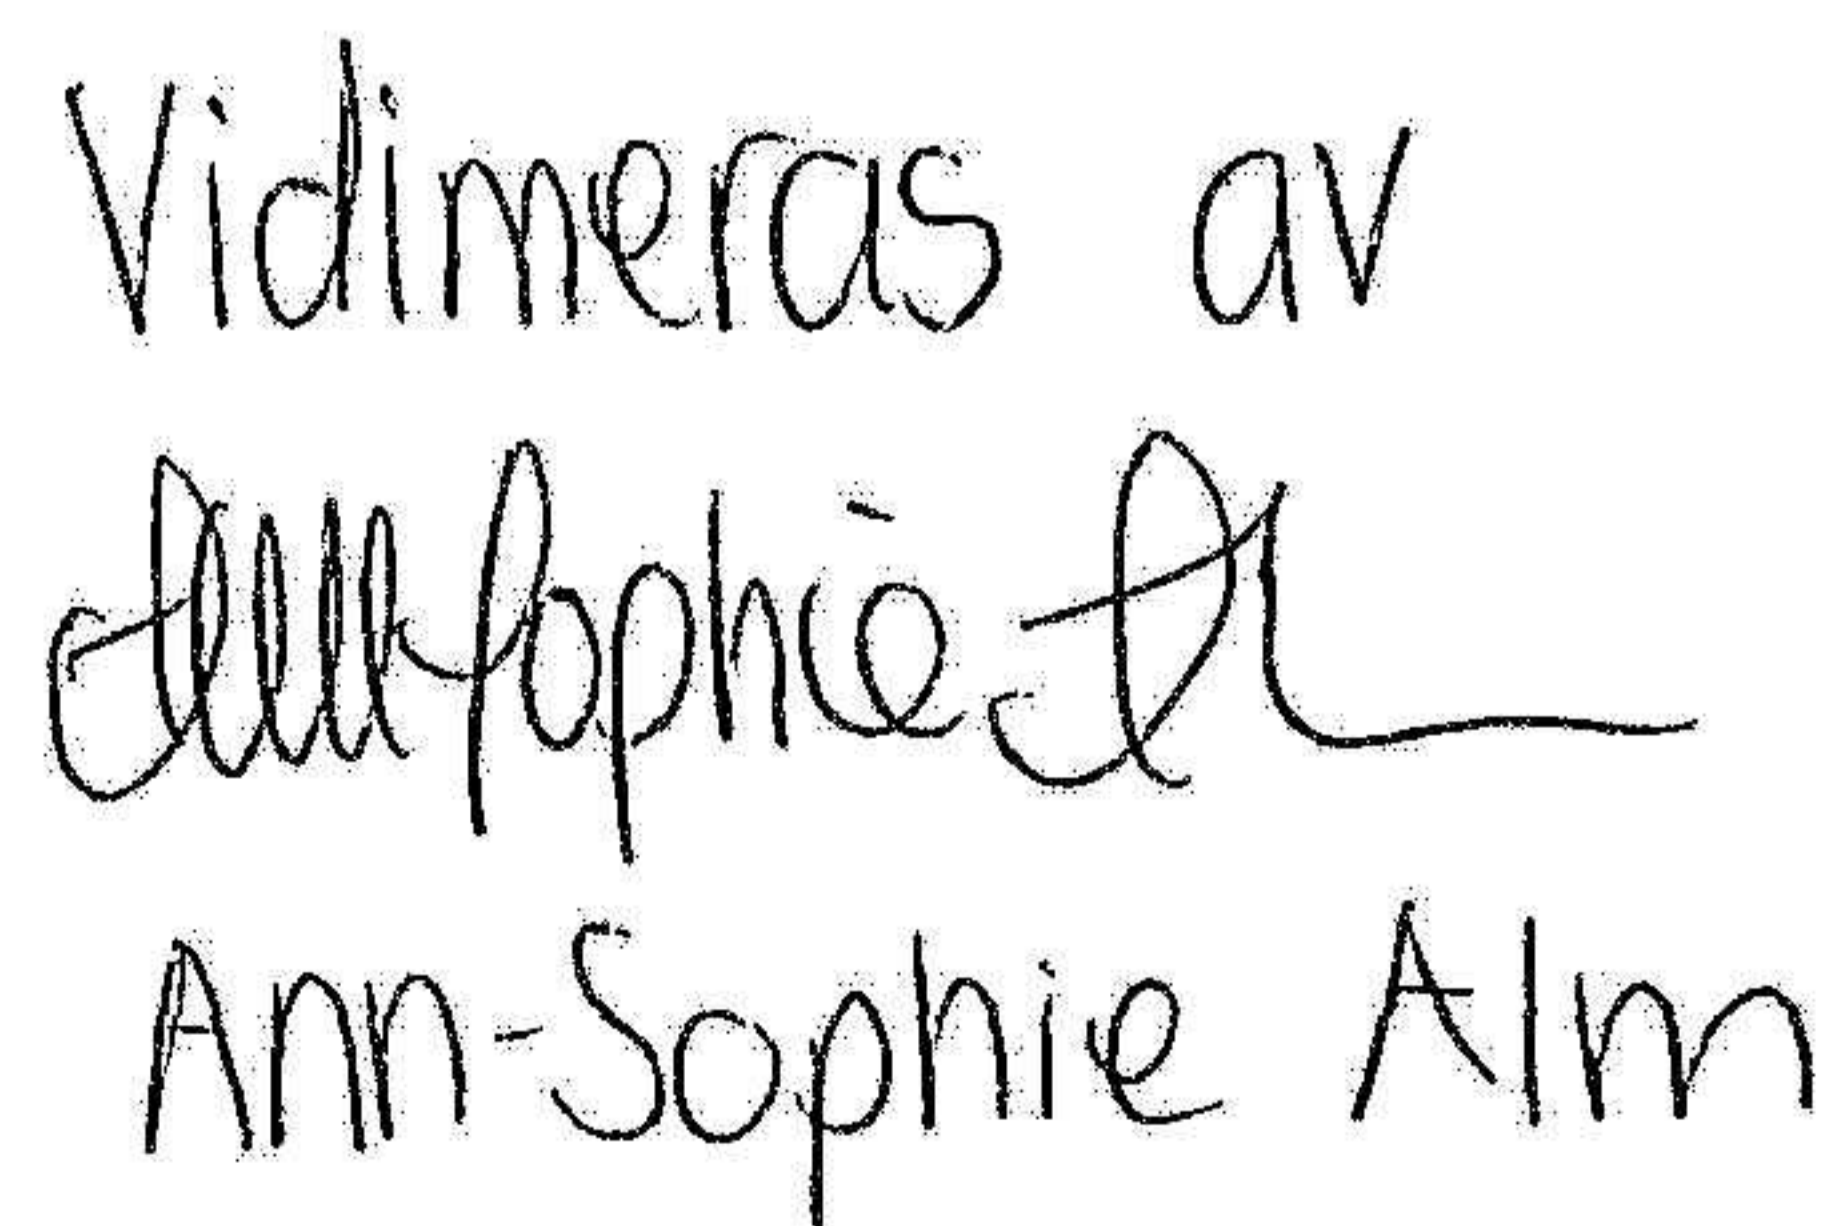 Vidimeras av
Ann-Sophie A
Ann-Sophie Alm